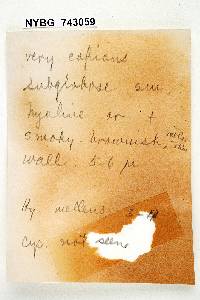 NYBG 743059
very copious
subglobose sm.
hyaline or +
smoky-brownish
wall. 5-6 µ
Hy
Cyc. not seen